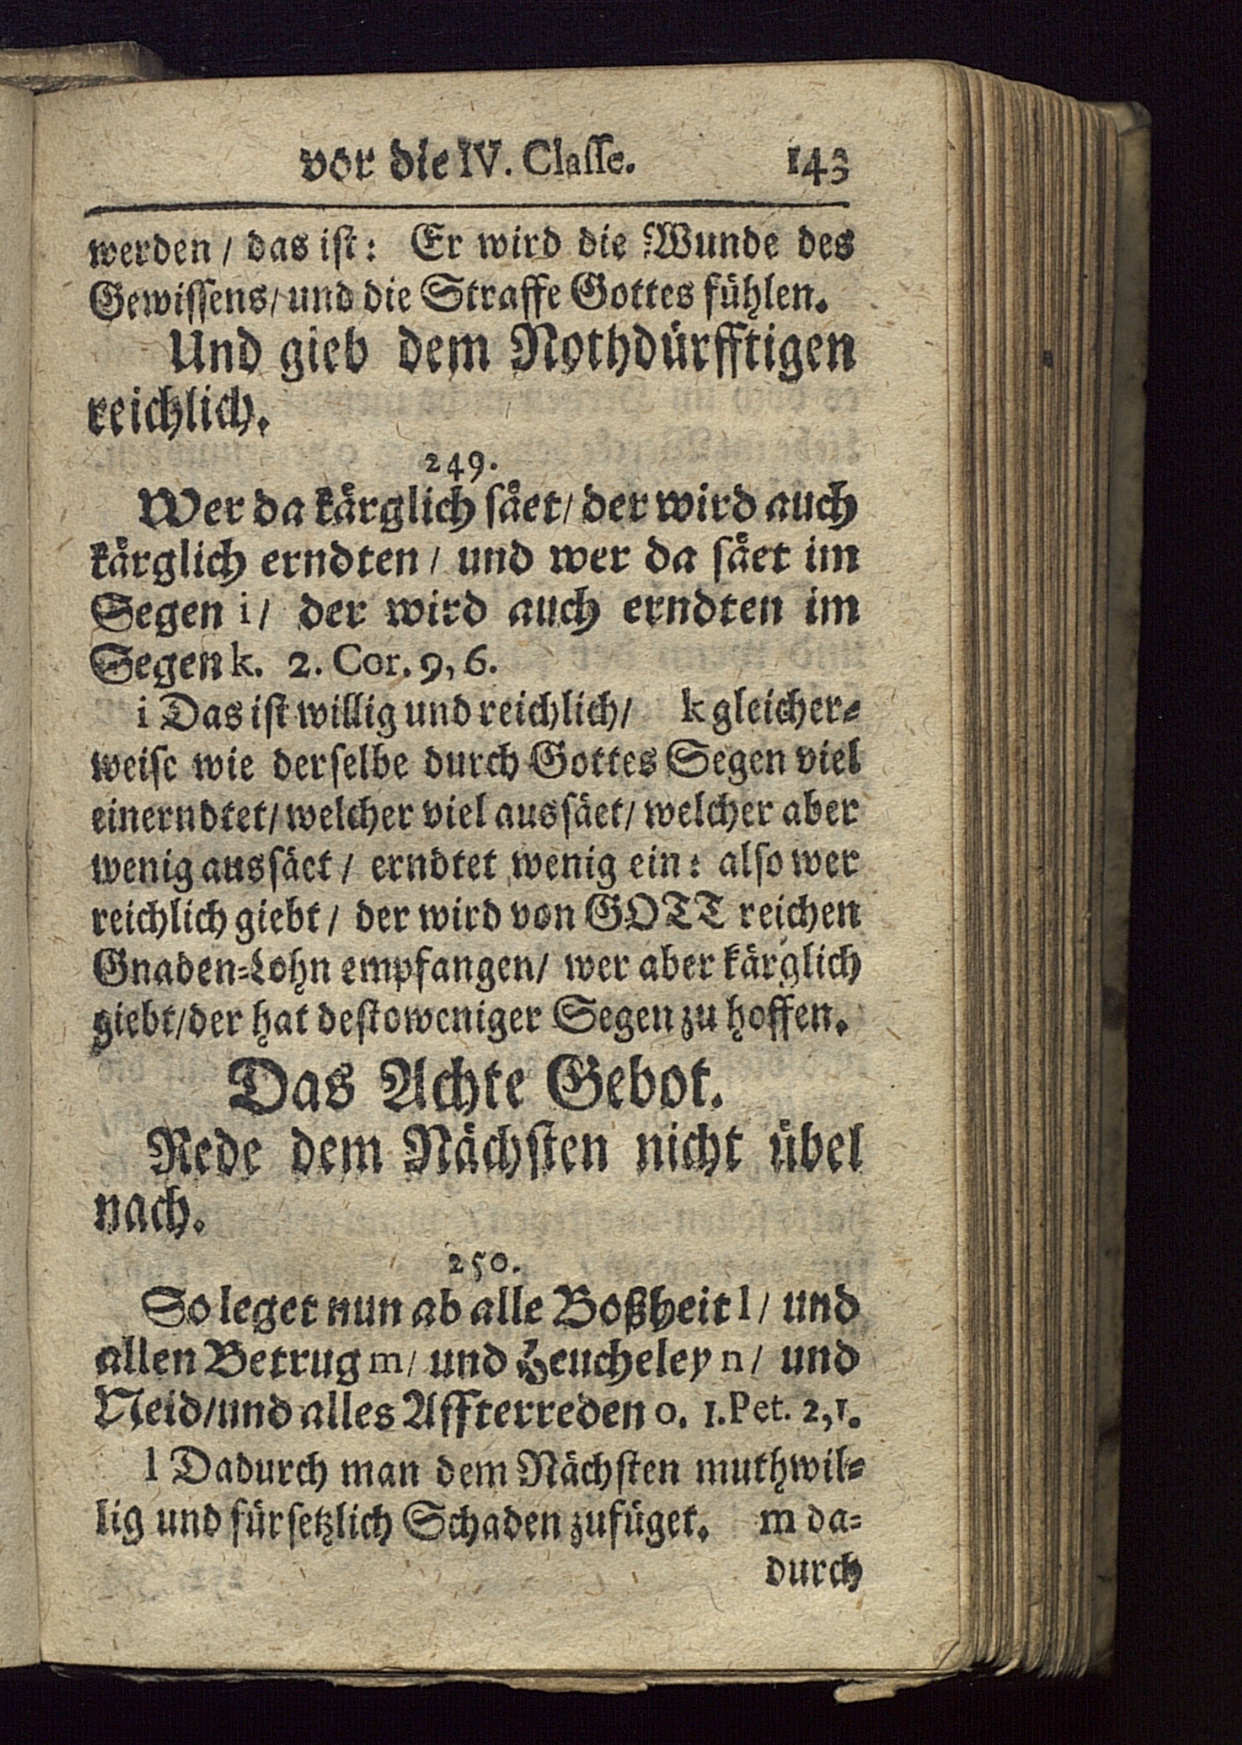 vor die IV. Classe. 143
werden / das ist: Er wird die Wunde des
Gewissens/ und die Straffe Gottes fühlen.
Und gieb dem Nothdürfftigen
reichlich.
249.
Wer da kärglich säet/ der wird auch
kärglich erndten / und wer da säet im
Segen i/ der wird auch erndten im
Segen k. 2. Cor. 9, 6.
i Das ist willig und reichlich/ k gleicher-
weise wie derselbe durch Gottes Segen viel
einerndtet/ welcher viel aussäet/ welcher aber
wenig aussäet / erndtet wenig ein: also wer
reichlich giebt / der wird von GOTT reichen
Gnaden-Lohn empfangen/ wer aber kärglich
giebt/der hat destoweniger Segen zu hoffen.
Das Achte Gebot.
Rede dem Nächsten nicht übel
nach.
250.
So leget nun ab alle Boßheit l / und
allen Betrug m/ und Heucheley n/ und
Neid/und alles Affterreden o. 1.Pet. 2,1.
l Dadurch man dem Nächsten muthwil-
lig und fürsetzlich Schaden zufüget. m da-
durch